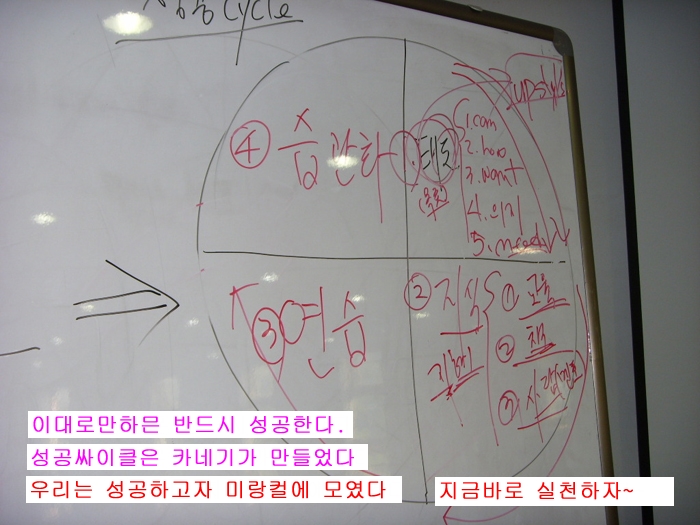 성공 cycle
upstyle
④ 습관화
1. 태도
(목표)
1. can
2. how
3. want
4. 의지
5. need
③ 연습
② 지식
지혜
① 교육
② 책
③ 사람
이대로만하믄 반드시 성공한다.
성공싸이클은 카네기가 만들었다
우리는 성공하고자 미랑컬에 모였다
지금바로 실천하자~